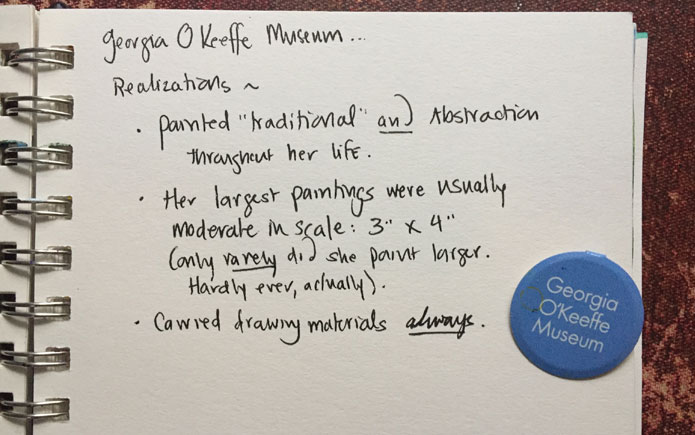 Georgia O'Keeffe Museum...
Realizations ~
• painted "traditional" and Abstraction
throughout her life.
• Her largest paintings were usually
moderate in scale: 3" x 4"
(only rarely did she paint larger.
Hardly ever, actually).
• Carried drawing materials always.
Georgia
O'Keeffe
Museum